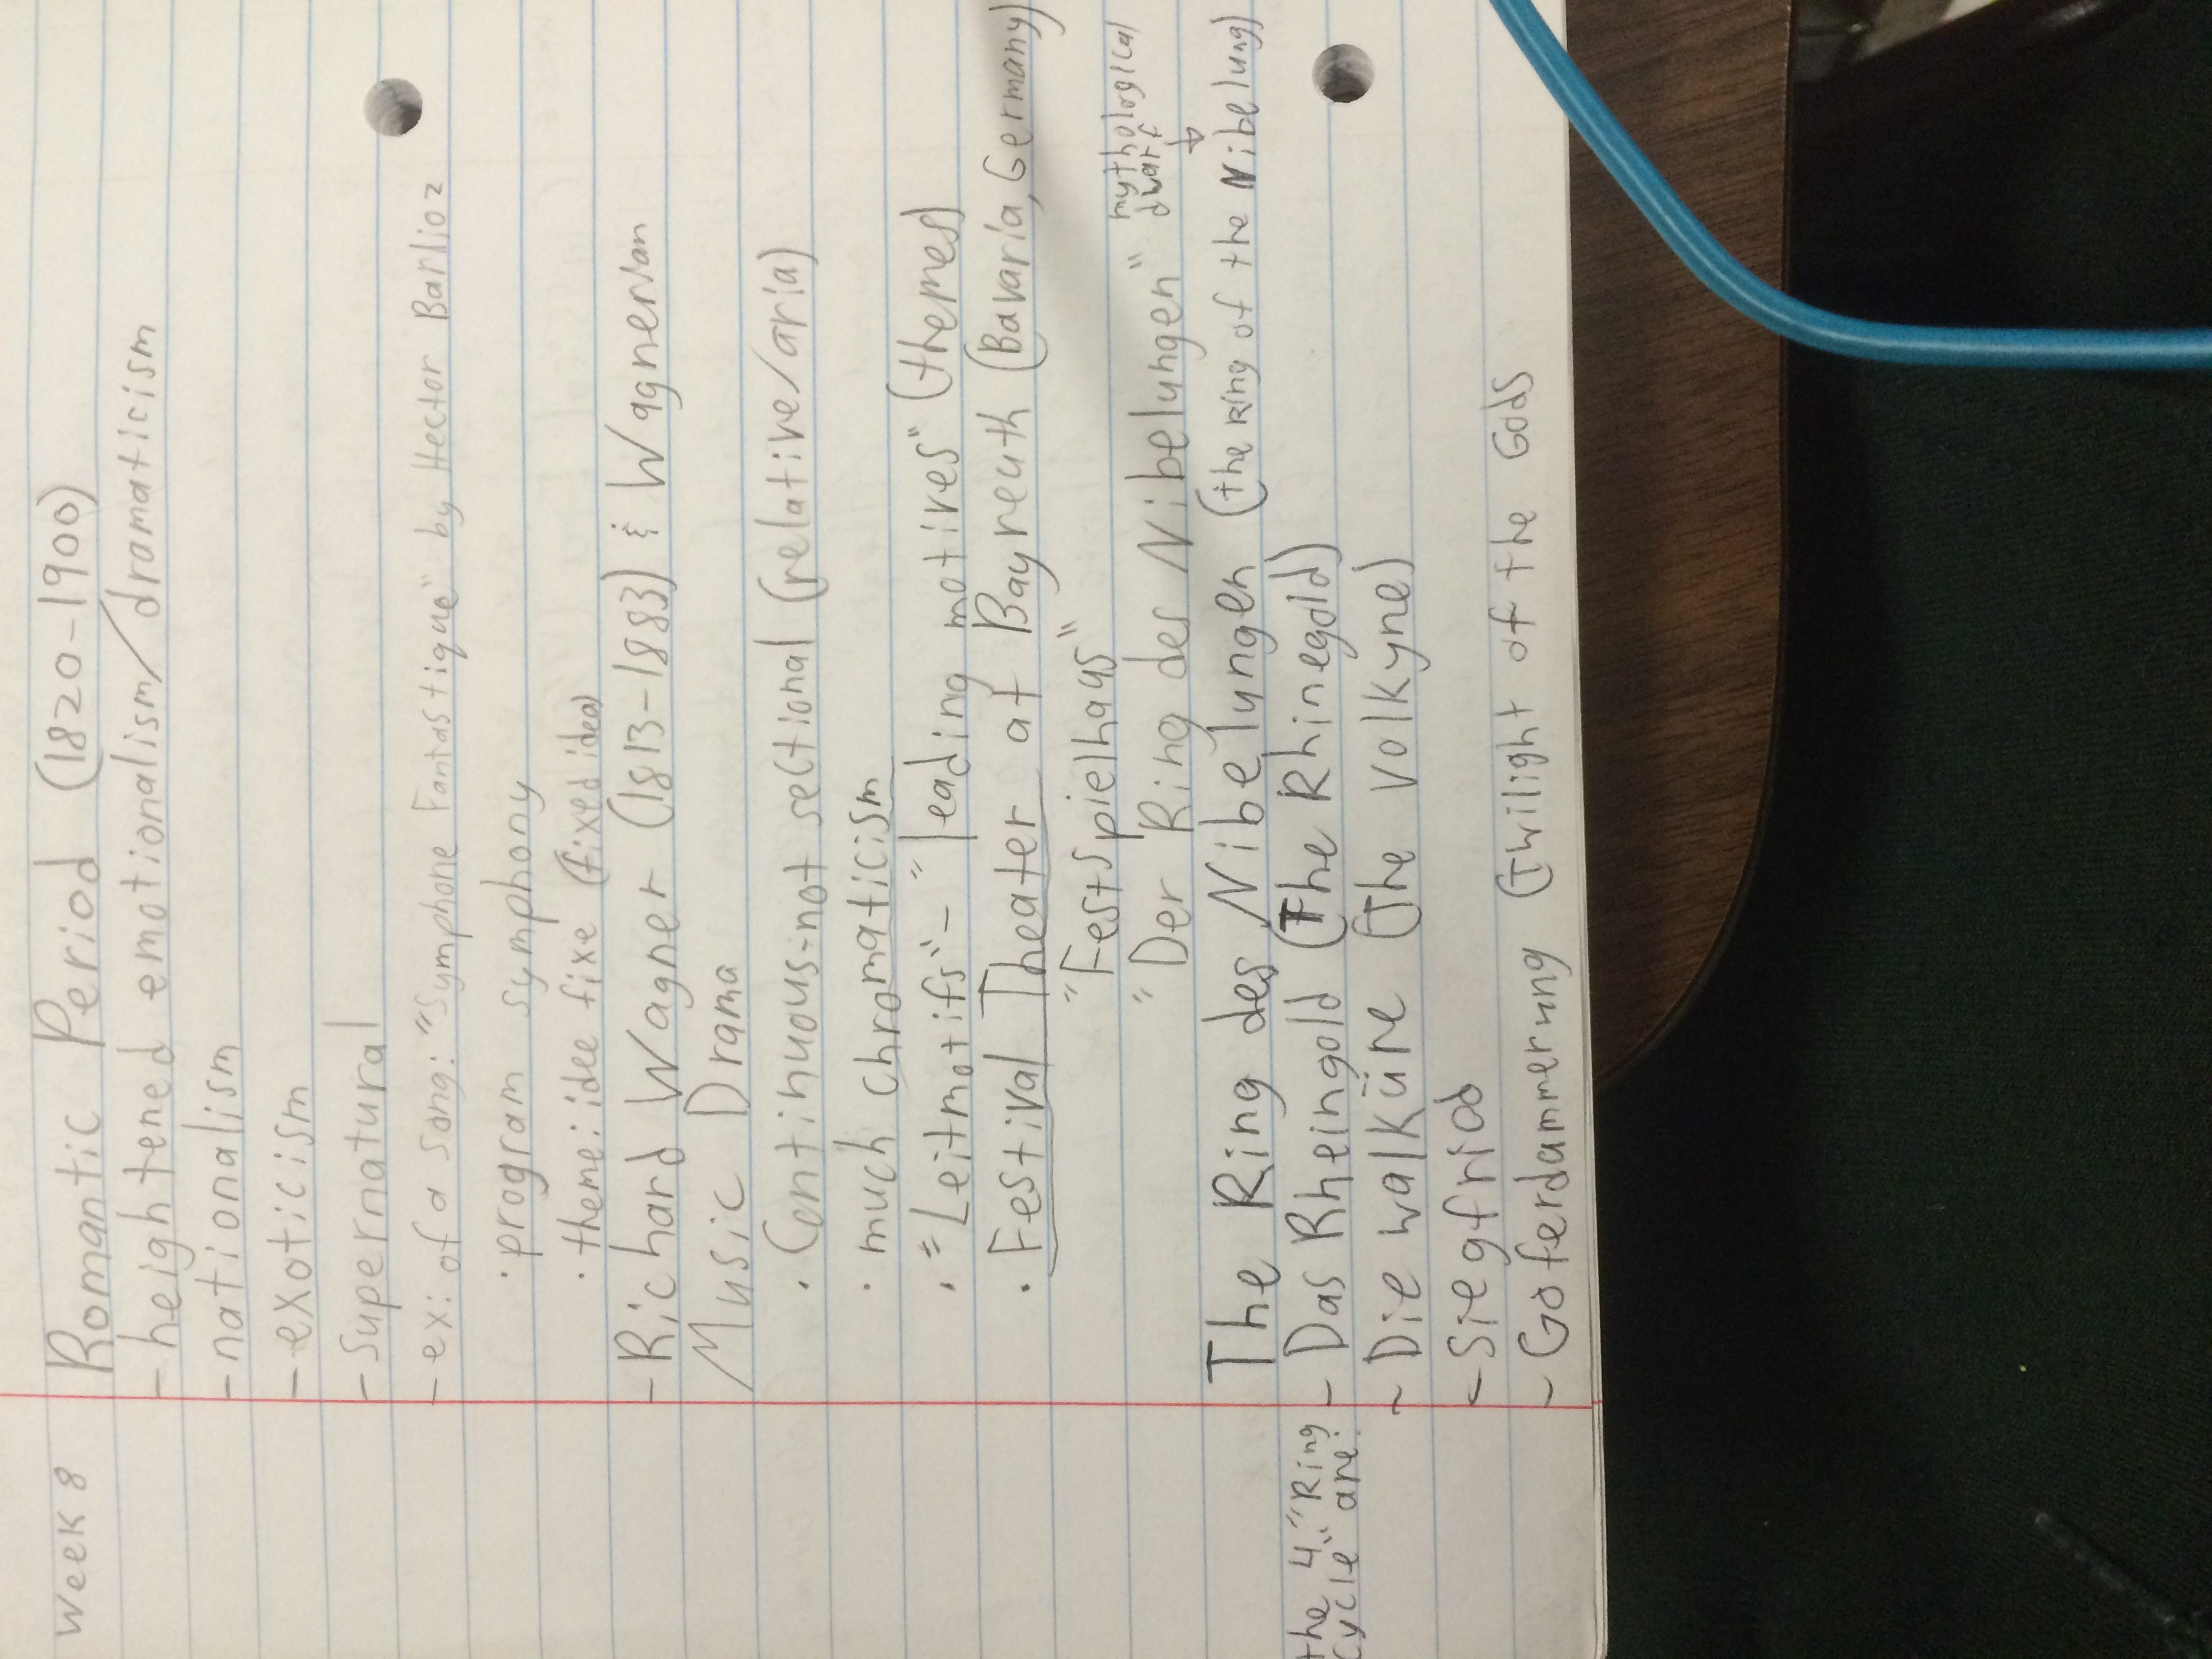 Week 8
Romantic Period (1820-1900)
- heightened emotionalism/dramaticism
- nationalism
- exoticism
- Supernatural
- ex: of a song: "Symphone Fantastique" by Hector Barlioz
· program symphony
· theme: idee fixe (fixed idea)
- Richard Wagner (1813-1883) & Wagnerian
Music Drama
· Continuous-not sectional (relative/aria)
· much chromaticism
· "Leitmotifs" - "leading motives" (themes)
· Festival Theater at Bayreuth (Bavaria, Germany)
"Festspielhaus"
"Der Ring des Nibelungen"
mythological
dwarf
The Ring des Nibelungen (the Ring of the Nibelung)
the 4 "Ring
cycle" are:
- Das Rheingold (The Rhinegold)
- Die walküre (The Volkyne)
- Siegfriod
- Goferdammerung (Twilight of the Gods